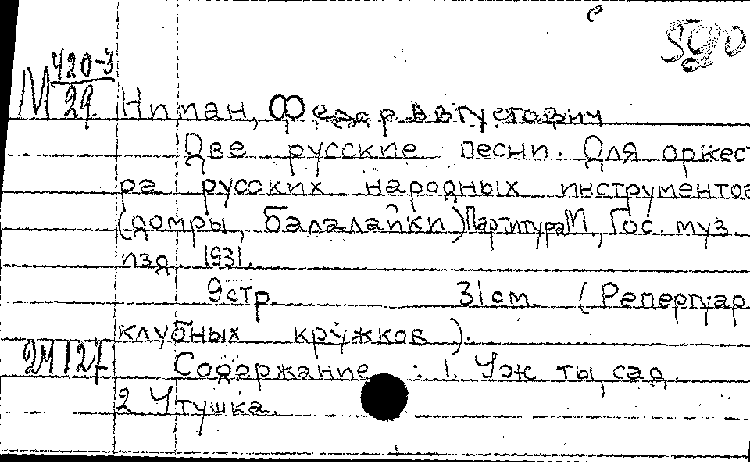 590
М 420-3
29
Ниман, Федор Августович
Две русские песни. Для оркест
ра русских народных инструментов
(домры, балалайки) Партитура М., Гос. муз.
изд 1931.
9 стр. 31 cm. (Репертуар
клубных кружков).
2М127 Содержание : 1. Уж ты, сад
2 Утушка.